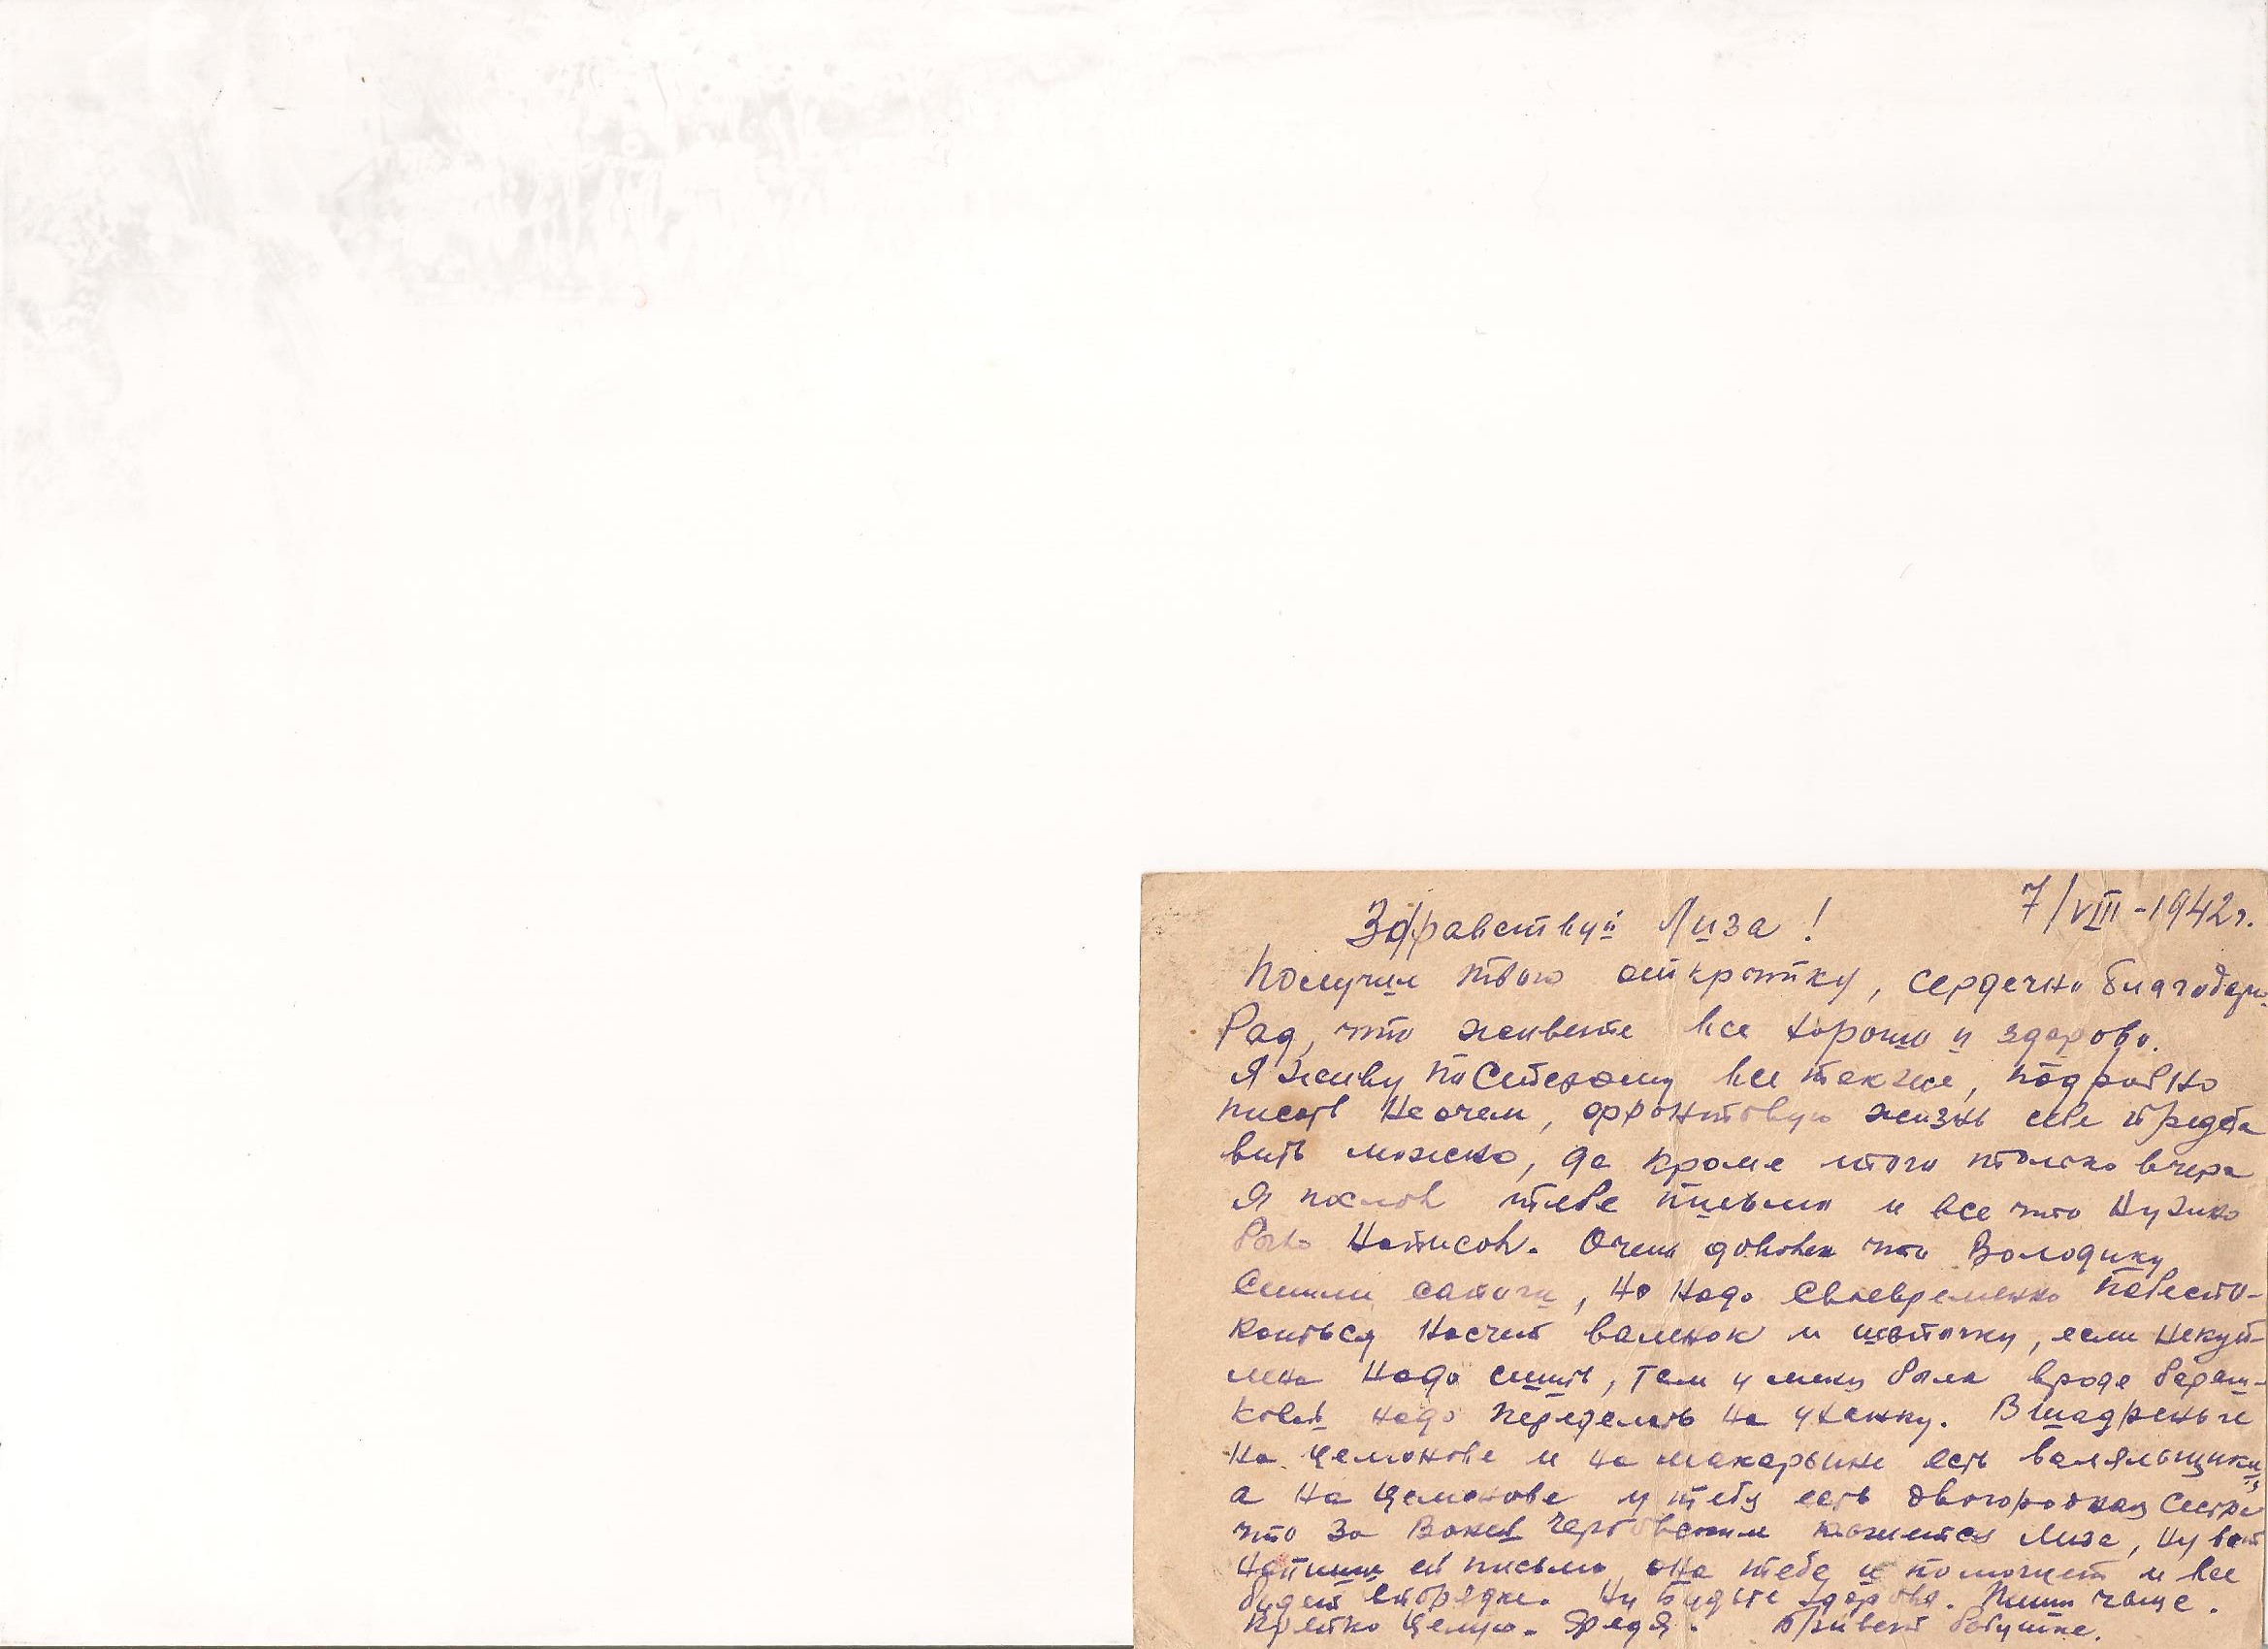 7/VIII-1942г.
Здравствуй Лиза!
Получил твою открытку, сердечно благодарю
Рад, что живете все хорошо и здорово.
Я живу постарому все также, подробно
писать неочем, фронтовую жизнь себе предста
вить можно, да кроме этого только вчера
я послал тебе письмо и все что нужно
было написал. Очень доволен что Володику
сшили сапоги, но надо своевременно побеспо-
коиться насчет валенок и шапочку, если некуп-
лена надо сшить, там у меня была вроде бараш-
ковая надо переделать на ушанку. В шадреньге
на Целюнове и на макарьине есть валяльщики,
а на Целюнове у тебя есть двоюродная сестра
что за Ваней кажется Лиза, ну вот
напиши ей письмо она тебе и поможет и все
будет впорядке. Ну будьте здоровы. Пиши чаще.
Крепко целую. Федя. Привет бабушке.